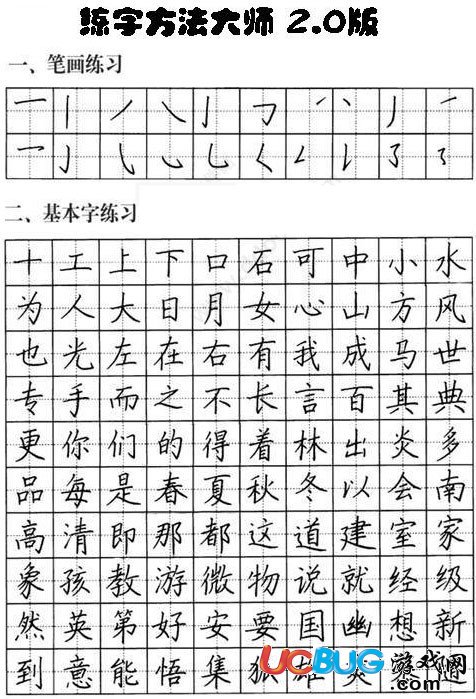 练字方法大师 2.0版
一、笔画练习
二、基本字练习
十工上下口石可中小水
为人大日月女心山方风
也光左在右有我成马世
专手而之不长言百其典
更你们的得着林出炎多
品每是春夏秋冬以会南
高清即那都这道建室家
象孩教游微物说就经级
然英第好安要国幽想新
到意能悟集
UCBUG游戏网
.com